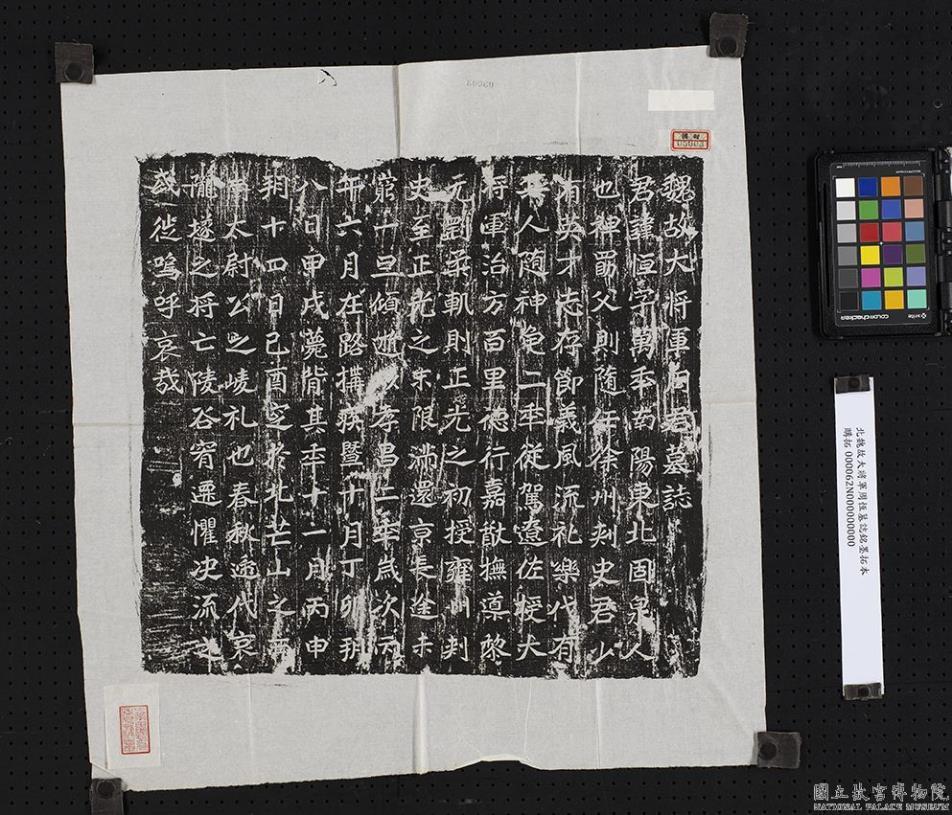 魏故大将軍周君墓誌
君諱恒字萬年南陽東北固泉人
也禅父則随年徐州刾史君少
有英才志存節義風流礼樂代有
其人随神龟二年從駕遼佐授大
将軍治方百里德行嘉猷撫導黎
元柔軌則正光之初授雍州刾
史至正光之末限滿還京長途未
一旦傾逝以孝昌二年歲次
年六月在路搆疾暨十月丁卯朔
八日甲戌薨背其年十一月丙申
朔十四日己酉窆於北芒山之西
太尉公之崚礼也春秋遞代哀
壠遂之将亡陵谷遷懼决流之
或徙嗚呼哀哉
北魏故大將軍周恆墓誌銘墨拓本
購拓 000062N000000000
colorchecker
x-rite
國立故宮博物院
NATIONAL PALACE MUSEUM